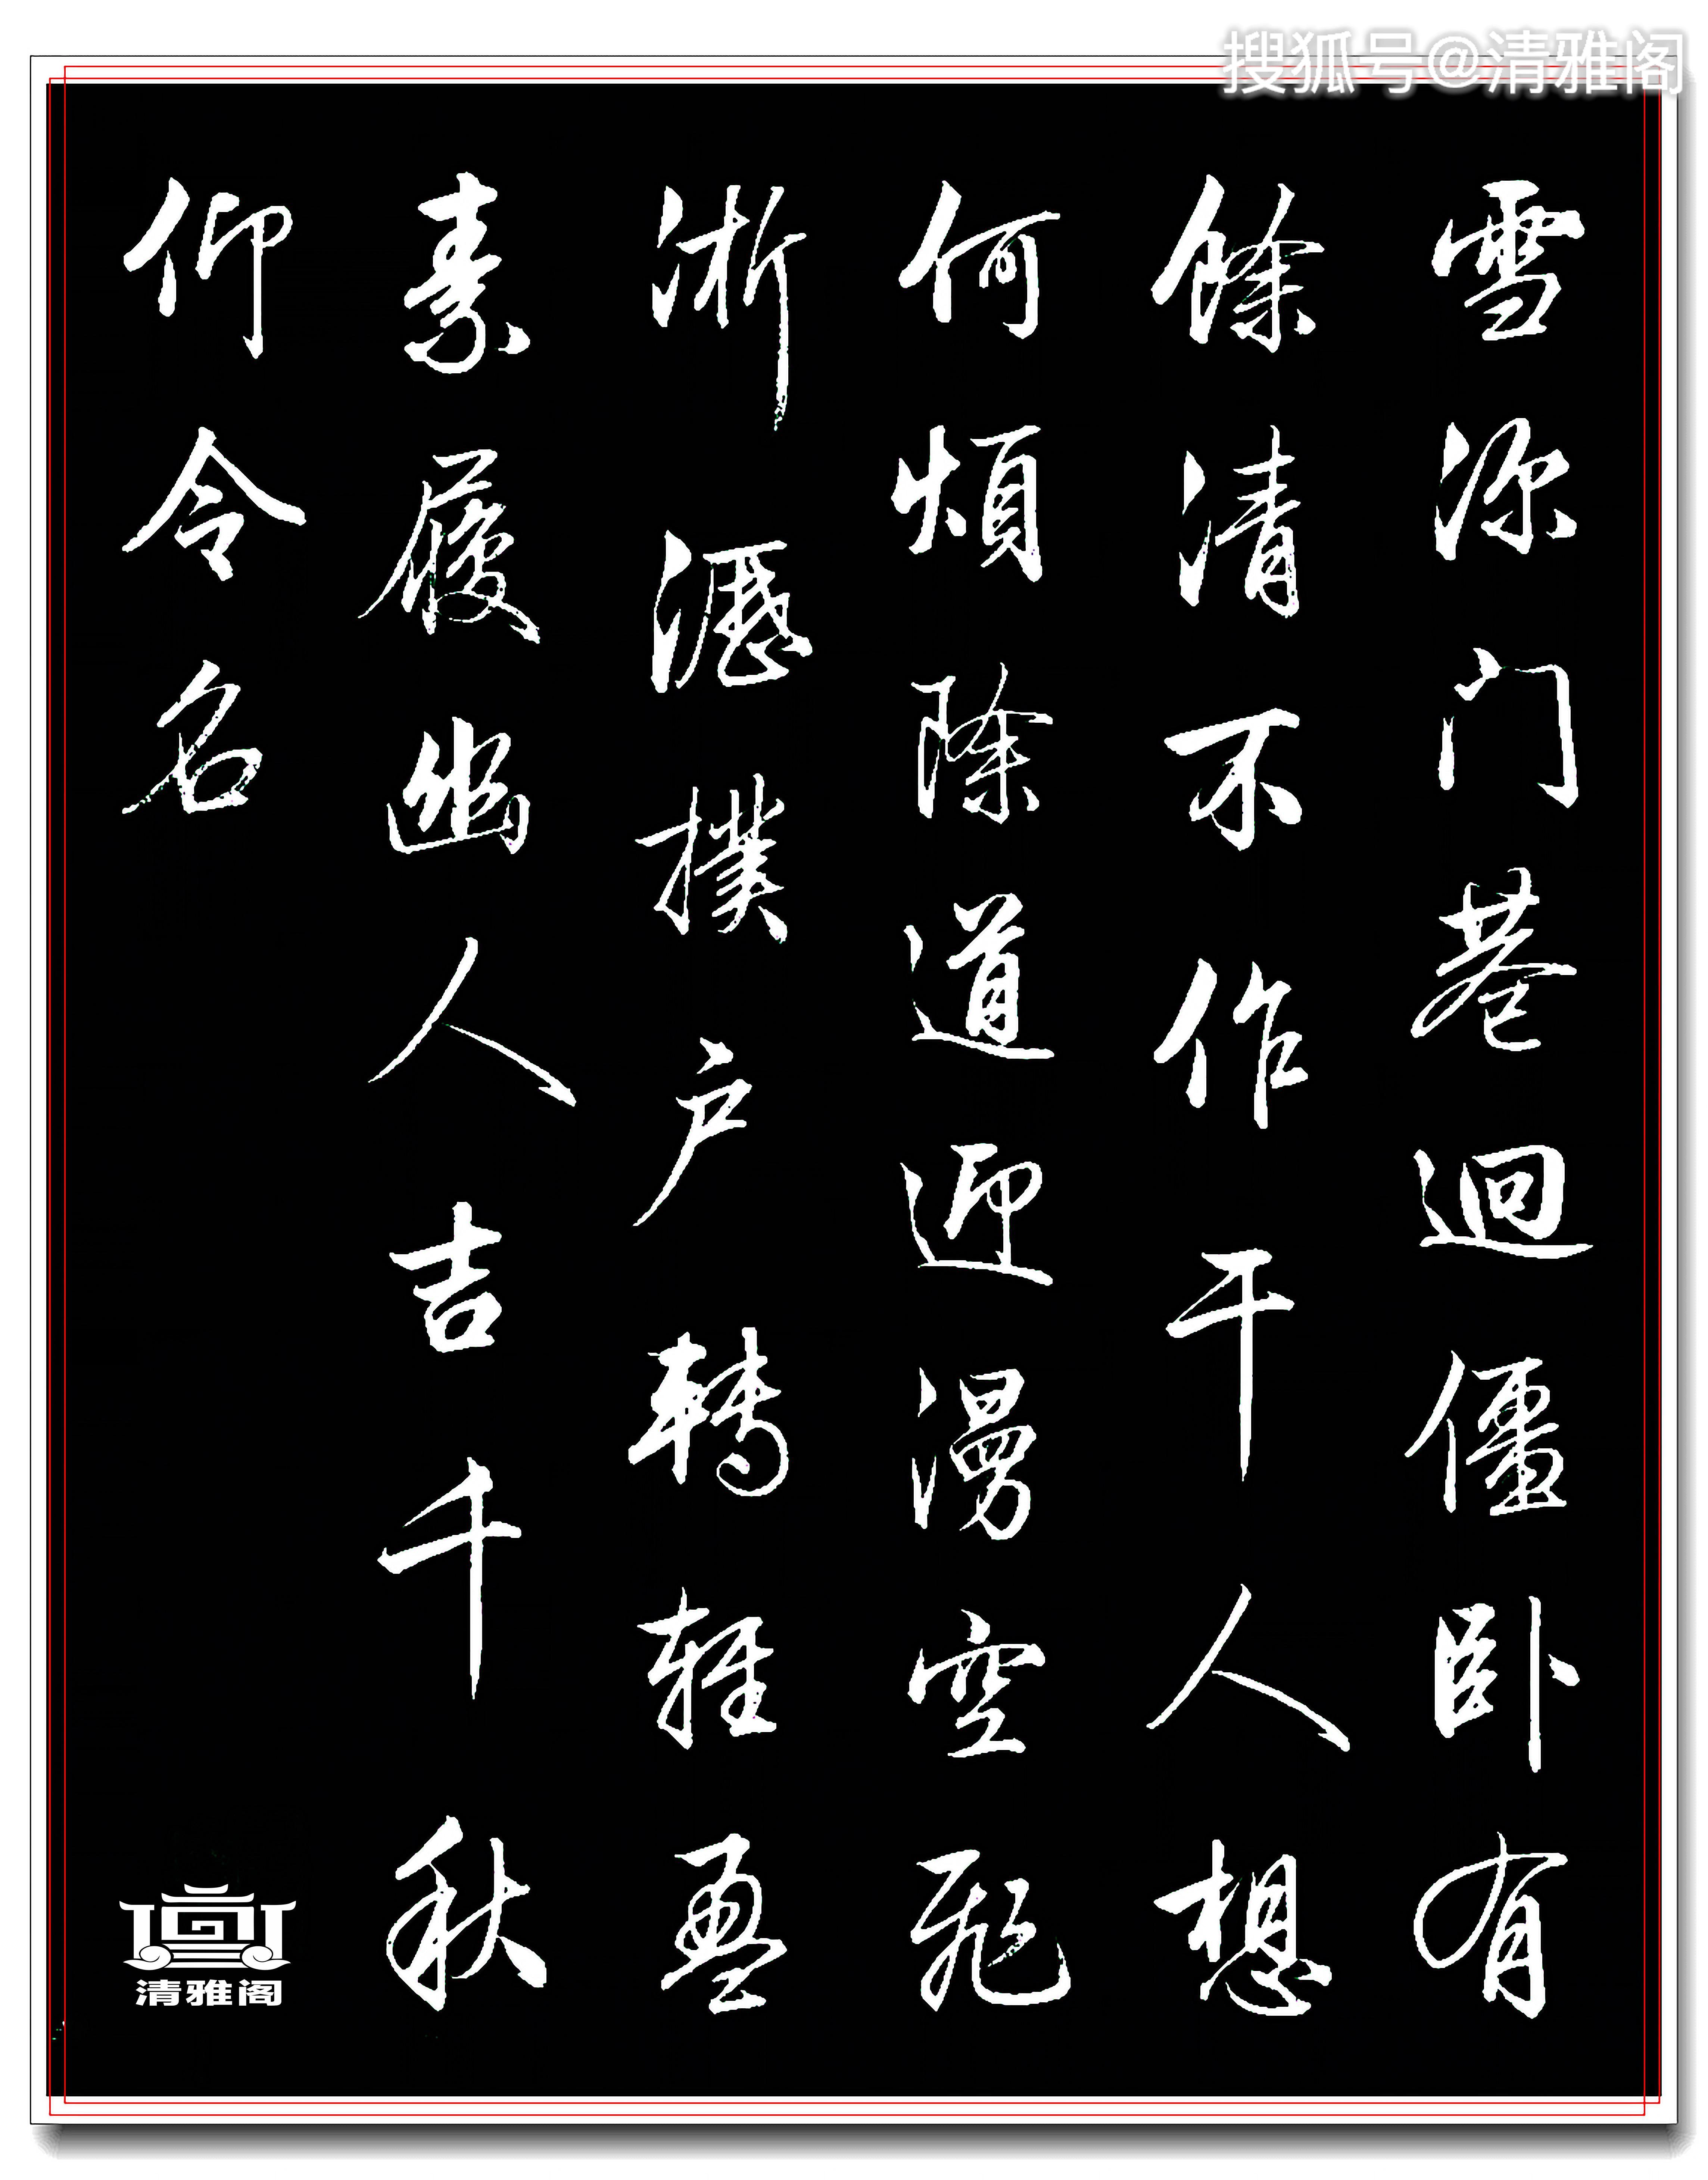 搜狐号@清雅阁
雪深门巷迥僵卧有
馀清不作干人想
何烦除道迎漫空飛
淅沥撲户转轻盈
素履幽人吉千秋
仰令名
清雅阁